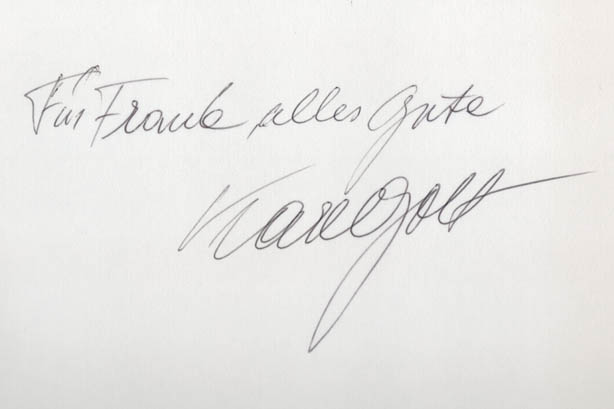 Für Frank alles Gute
Karel Gott